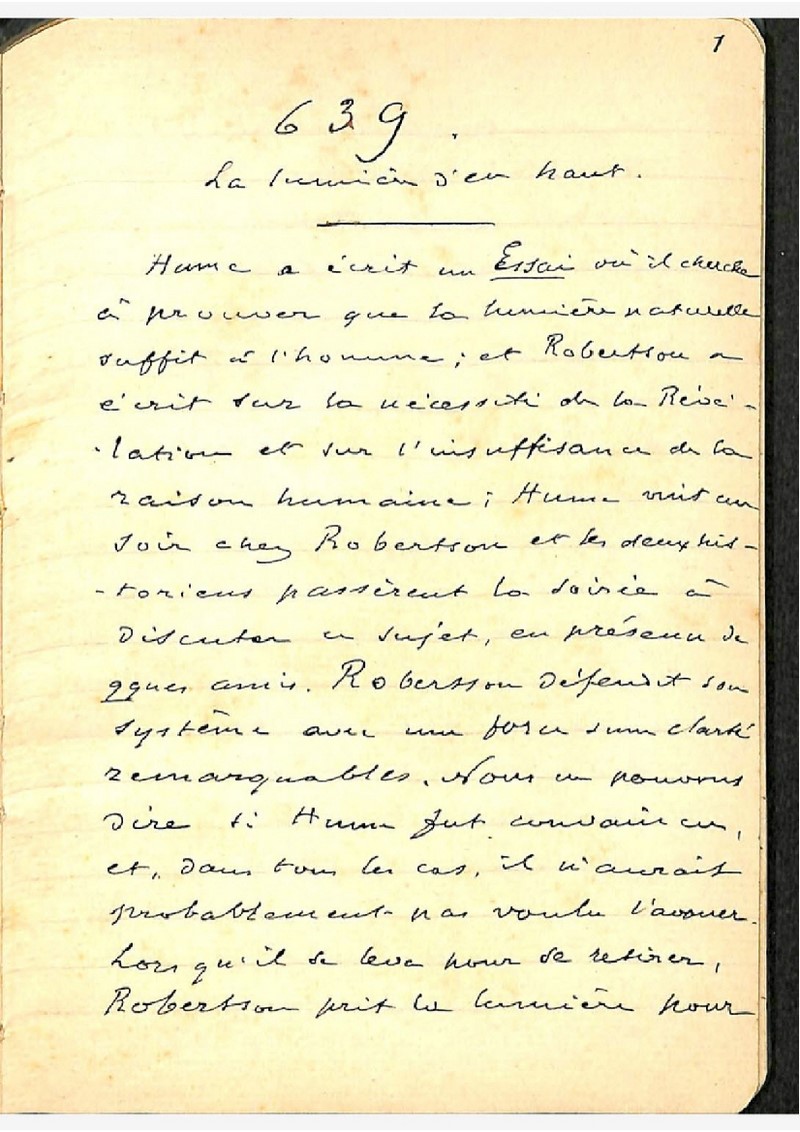 1
639.
La lumière d'en haut.
Hume a écrit un Essai où il cherche
à prouver que la lumière naturelle
suffit à l'homme ; et Robertson a
écrit sur la nécessité de la Révé-
-lation et sur l'insuffisance de la
raison humaine ; Hume vint un
soir chez Robertson et les deux his-
-toriens passèrent la soirée à
discuter ce sujet, en présence de
qques amis. Robertson défendit son
système avec une force & une clarté
remarquables. Nous ne pouvons
dire si Hume fut convaincu,
et, dans tous les cas, il n'aurait
probablement pas voulu l'avouer.
Lorsqu'il se leva pour se retirer,
Robertson prit la lumière pour